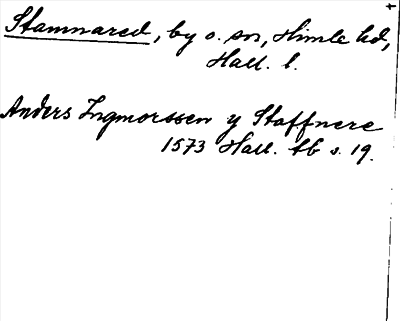 Stamnared, by o. sn, Himle hd,
Hall. l.
Anders Ingmorssen y Staffnere
1573 Hall. tb s. 19.